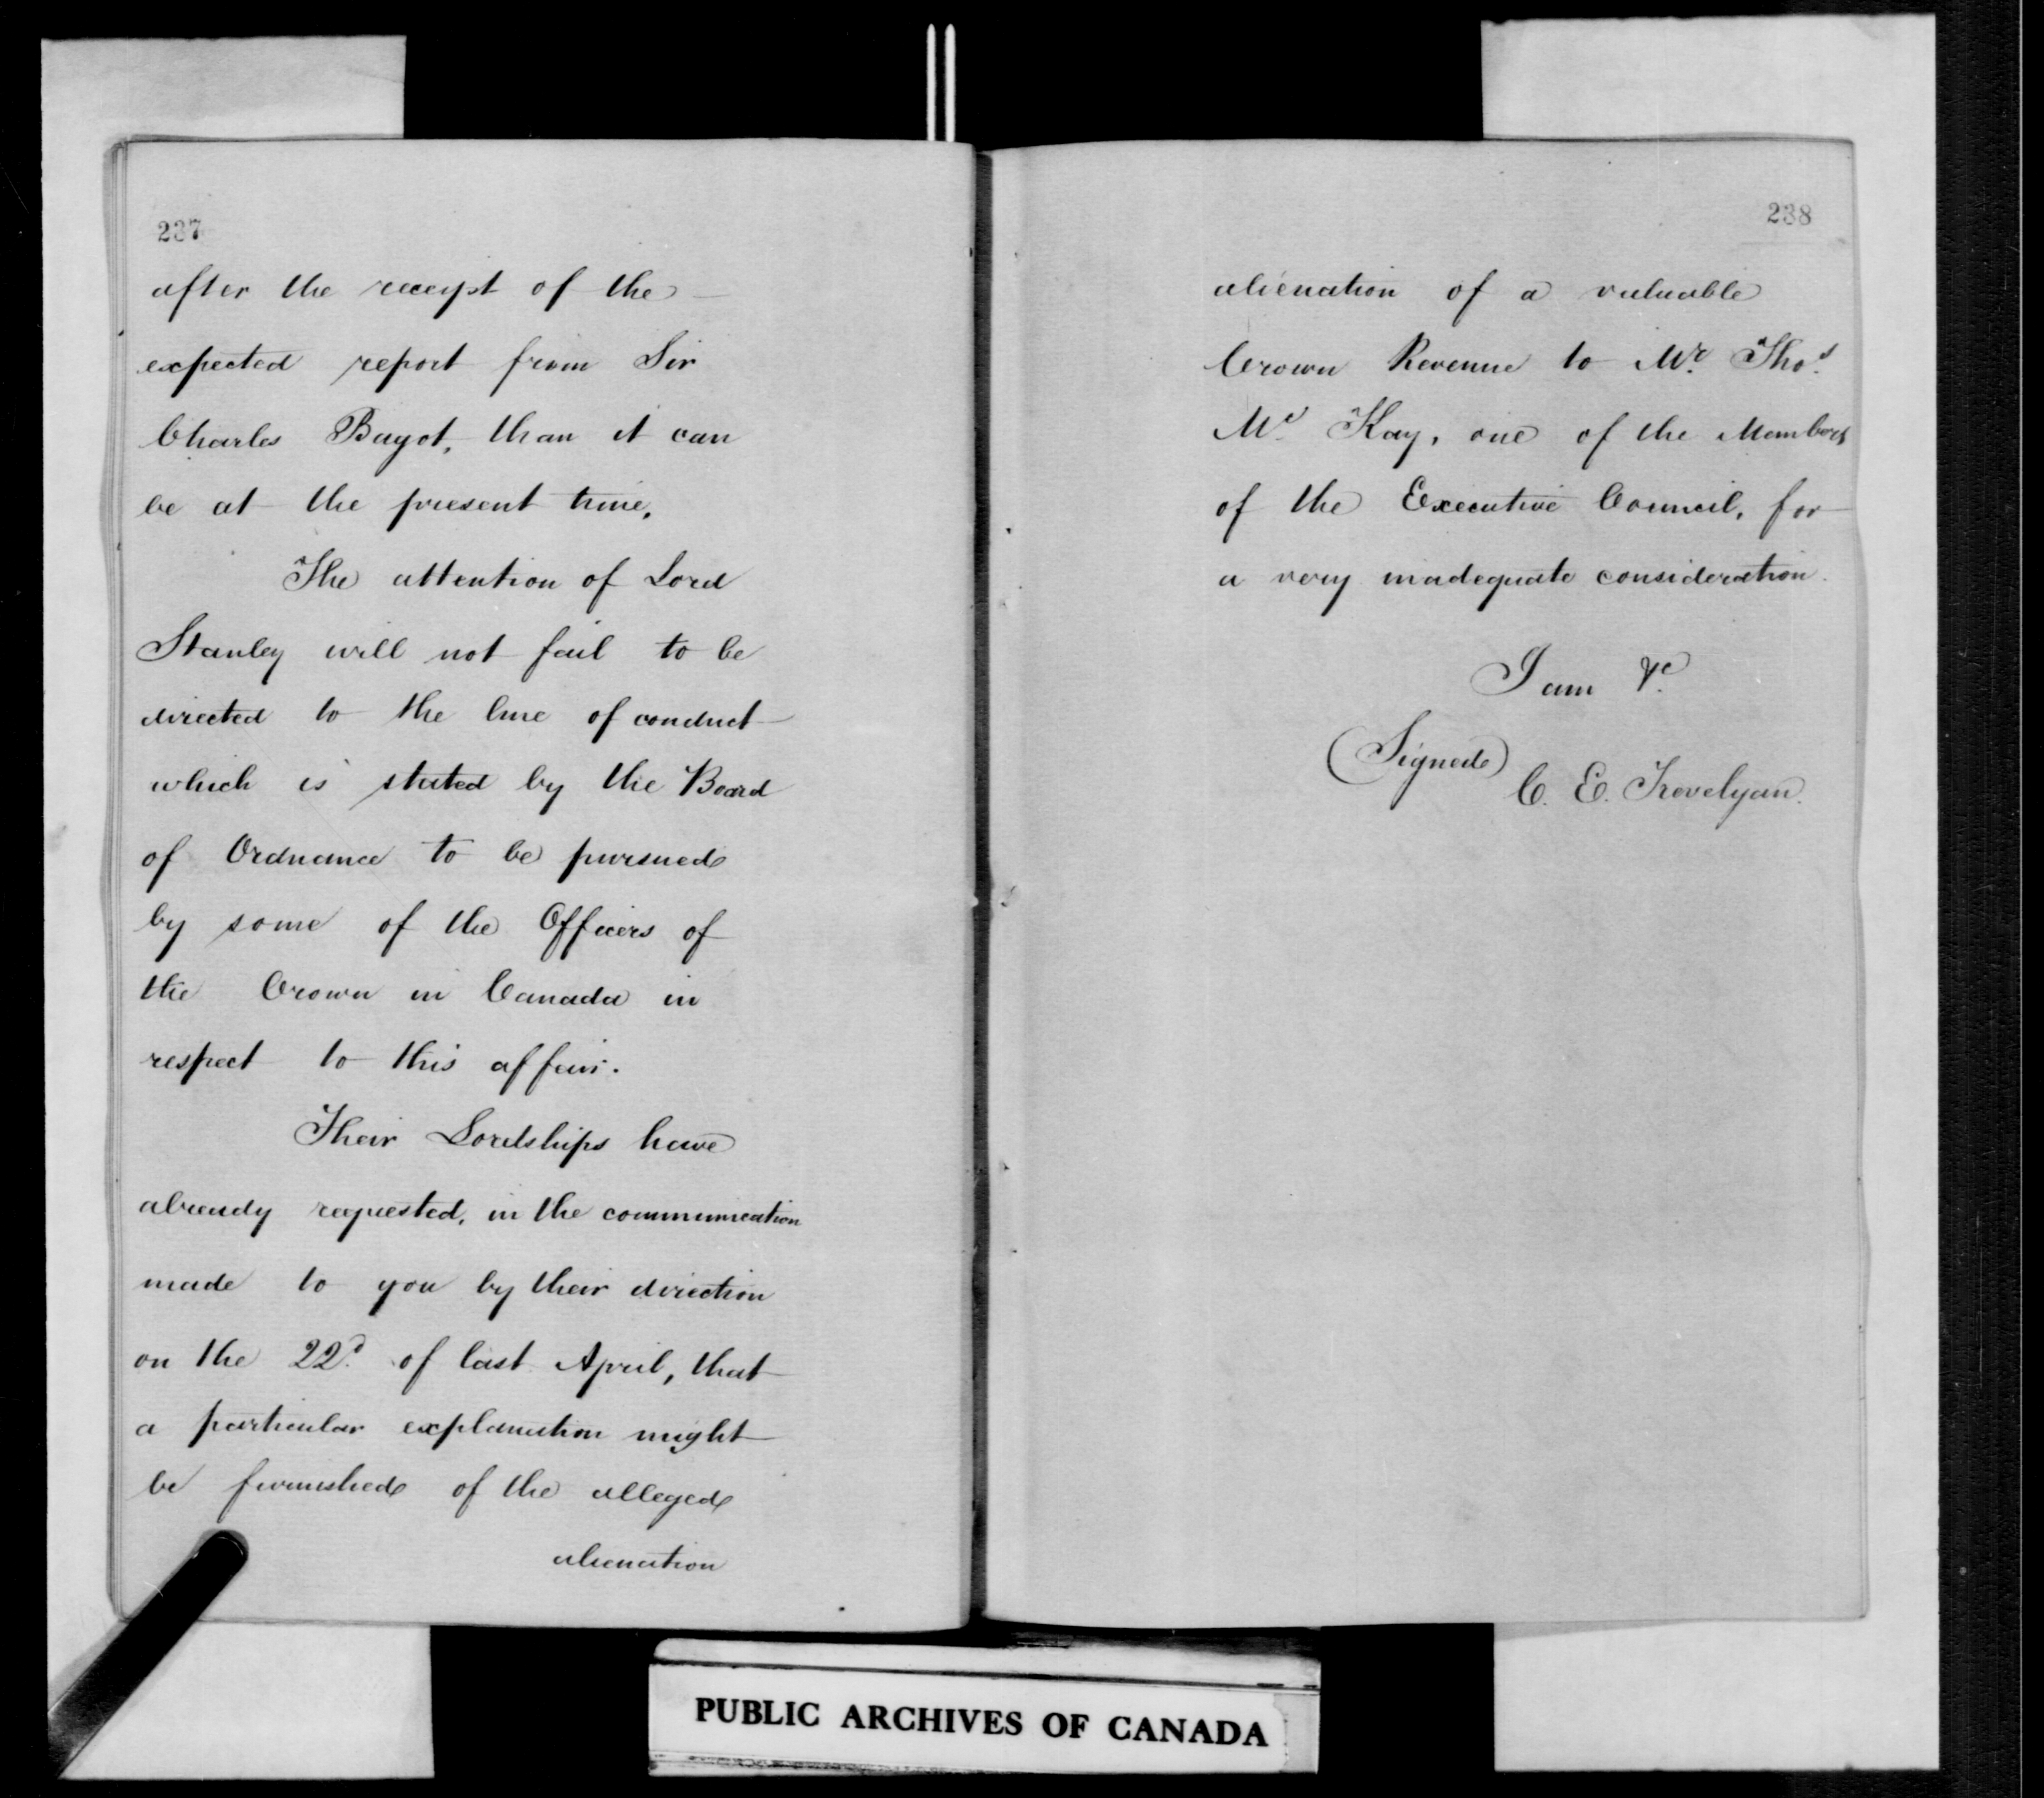 237
after the receipt of the
expected report from Sir
Charles Bagot, than it can
be at the present time.
The attention of Lord
Stanley will not fail to be
directed to the line of conduct
which is stated by the Board
of Ordnance to be pursued
by some of the Officers of
the Crown in Canada in
respect to this affair.
Their Lordships have
already requested, in the communication
made to you by their direction
on the 22d. of last April, that
a particular explanation might
be furnished of the alleged
alienation
238
alienation of a valuable
Crown Revenue to Mr. Thos.
Mc Kay, one of the Members
of the Executive Council, for
a very inadequate consideration.
I am &c.
(Signed) C. E. Trevelyan.
PUBLIC ARCHIVES OF CANADA